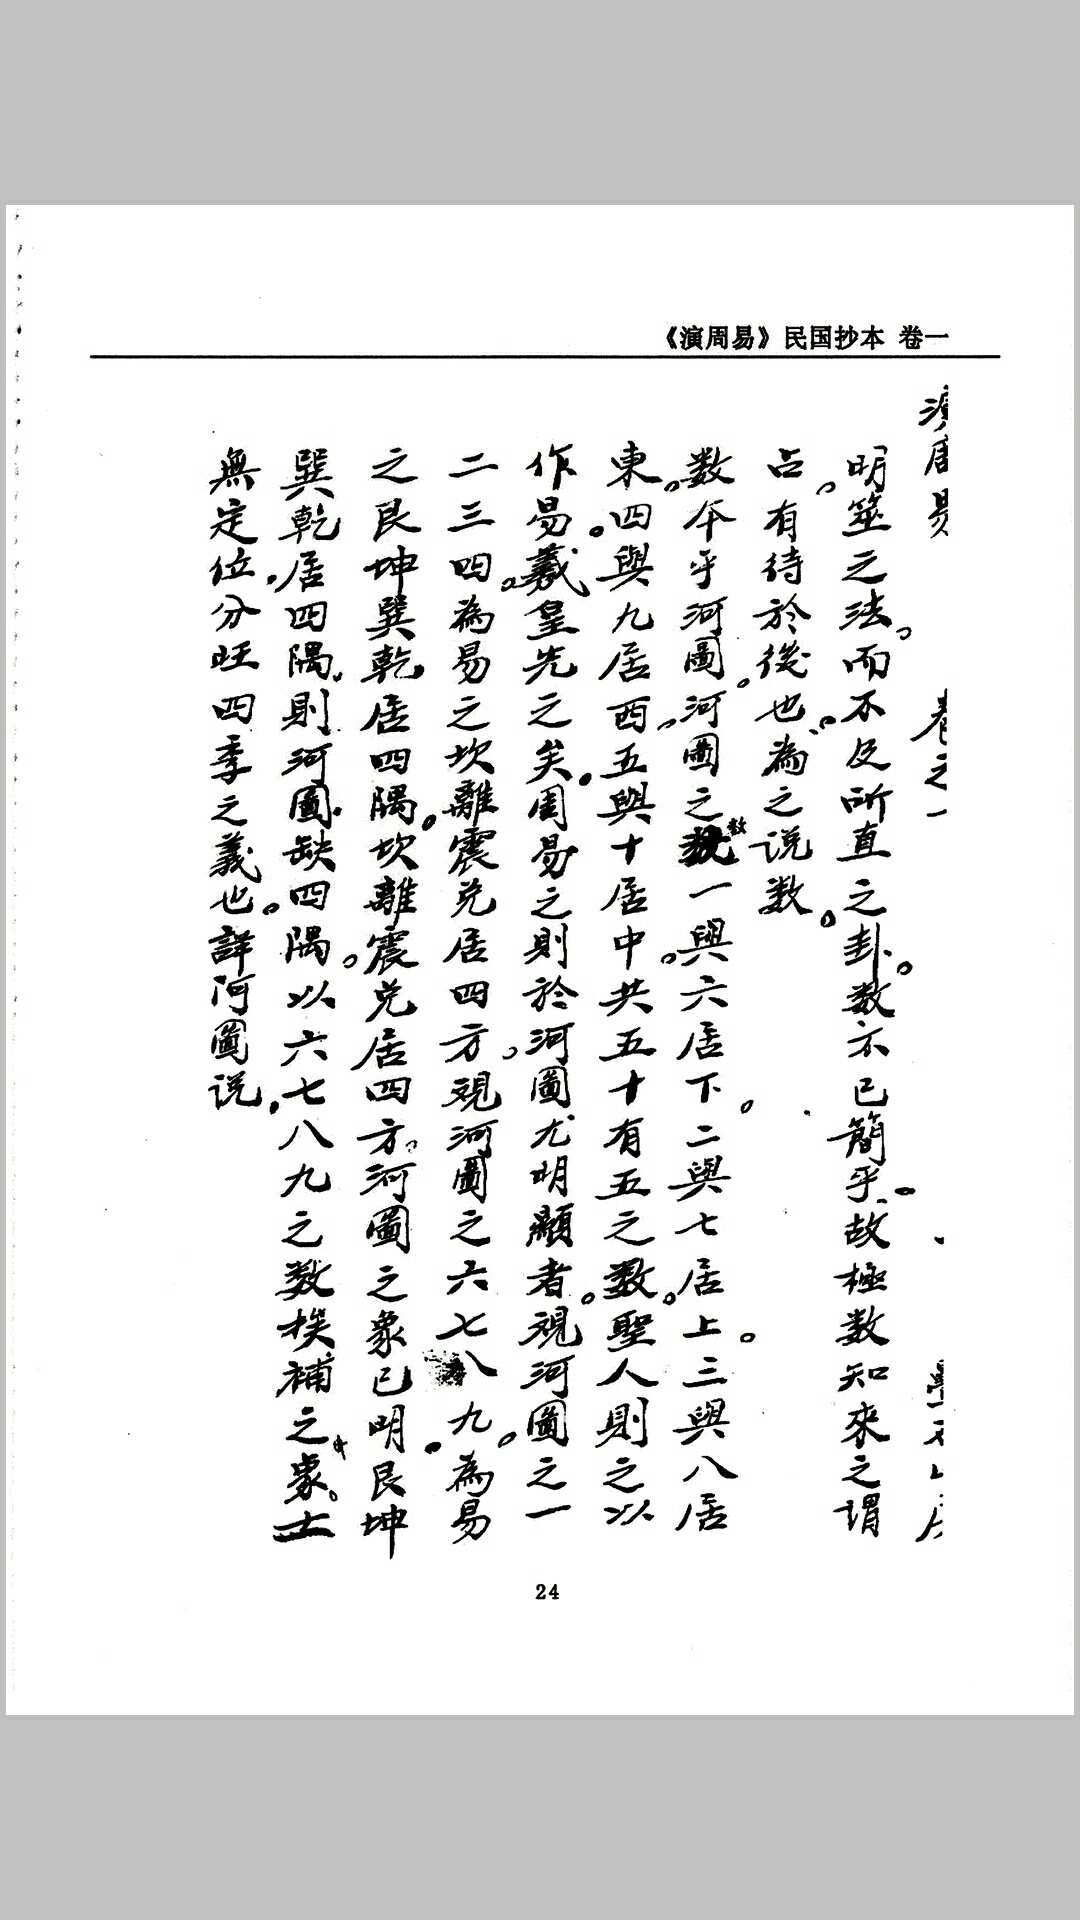 《演周易》民国抄本 卷一
演周易 卷之一
明筮之法。而不及所直之卦。数不已簡乎。故極数知來之謂
占。有待於後也。為之说数。
数本乎河圖。河圖之数一與六居下。二與七居上。三與八居
東。四與九居西。五與十居中。共五十有五之数。聖人則之以
作易。羲皇先之矣。周易之則於河圖尤明顯者。視河圖之一
二三四。為易之坎離震兑居四方。視河圖之六七八九。為易
之艮坤巽乾居四隅。坎離震兑居四方。河圖之象已明。艮坤
巽乾居四隅。則河圖缺四隅。以六七八九之数挨補之象。土
無定位。分旺四季之義也。詳河圖说。
24